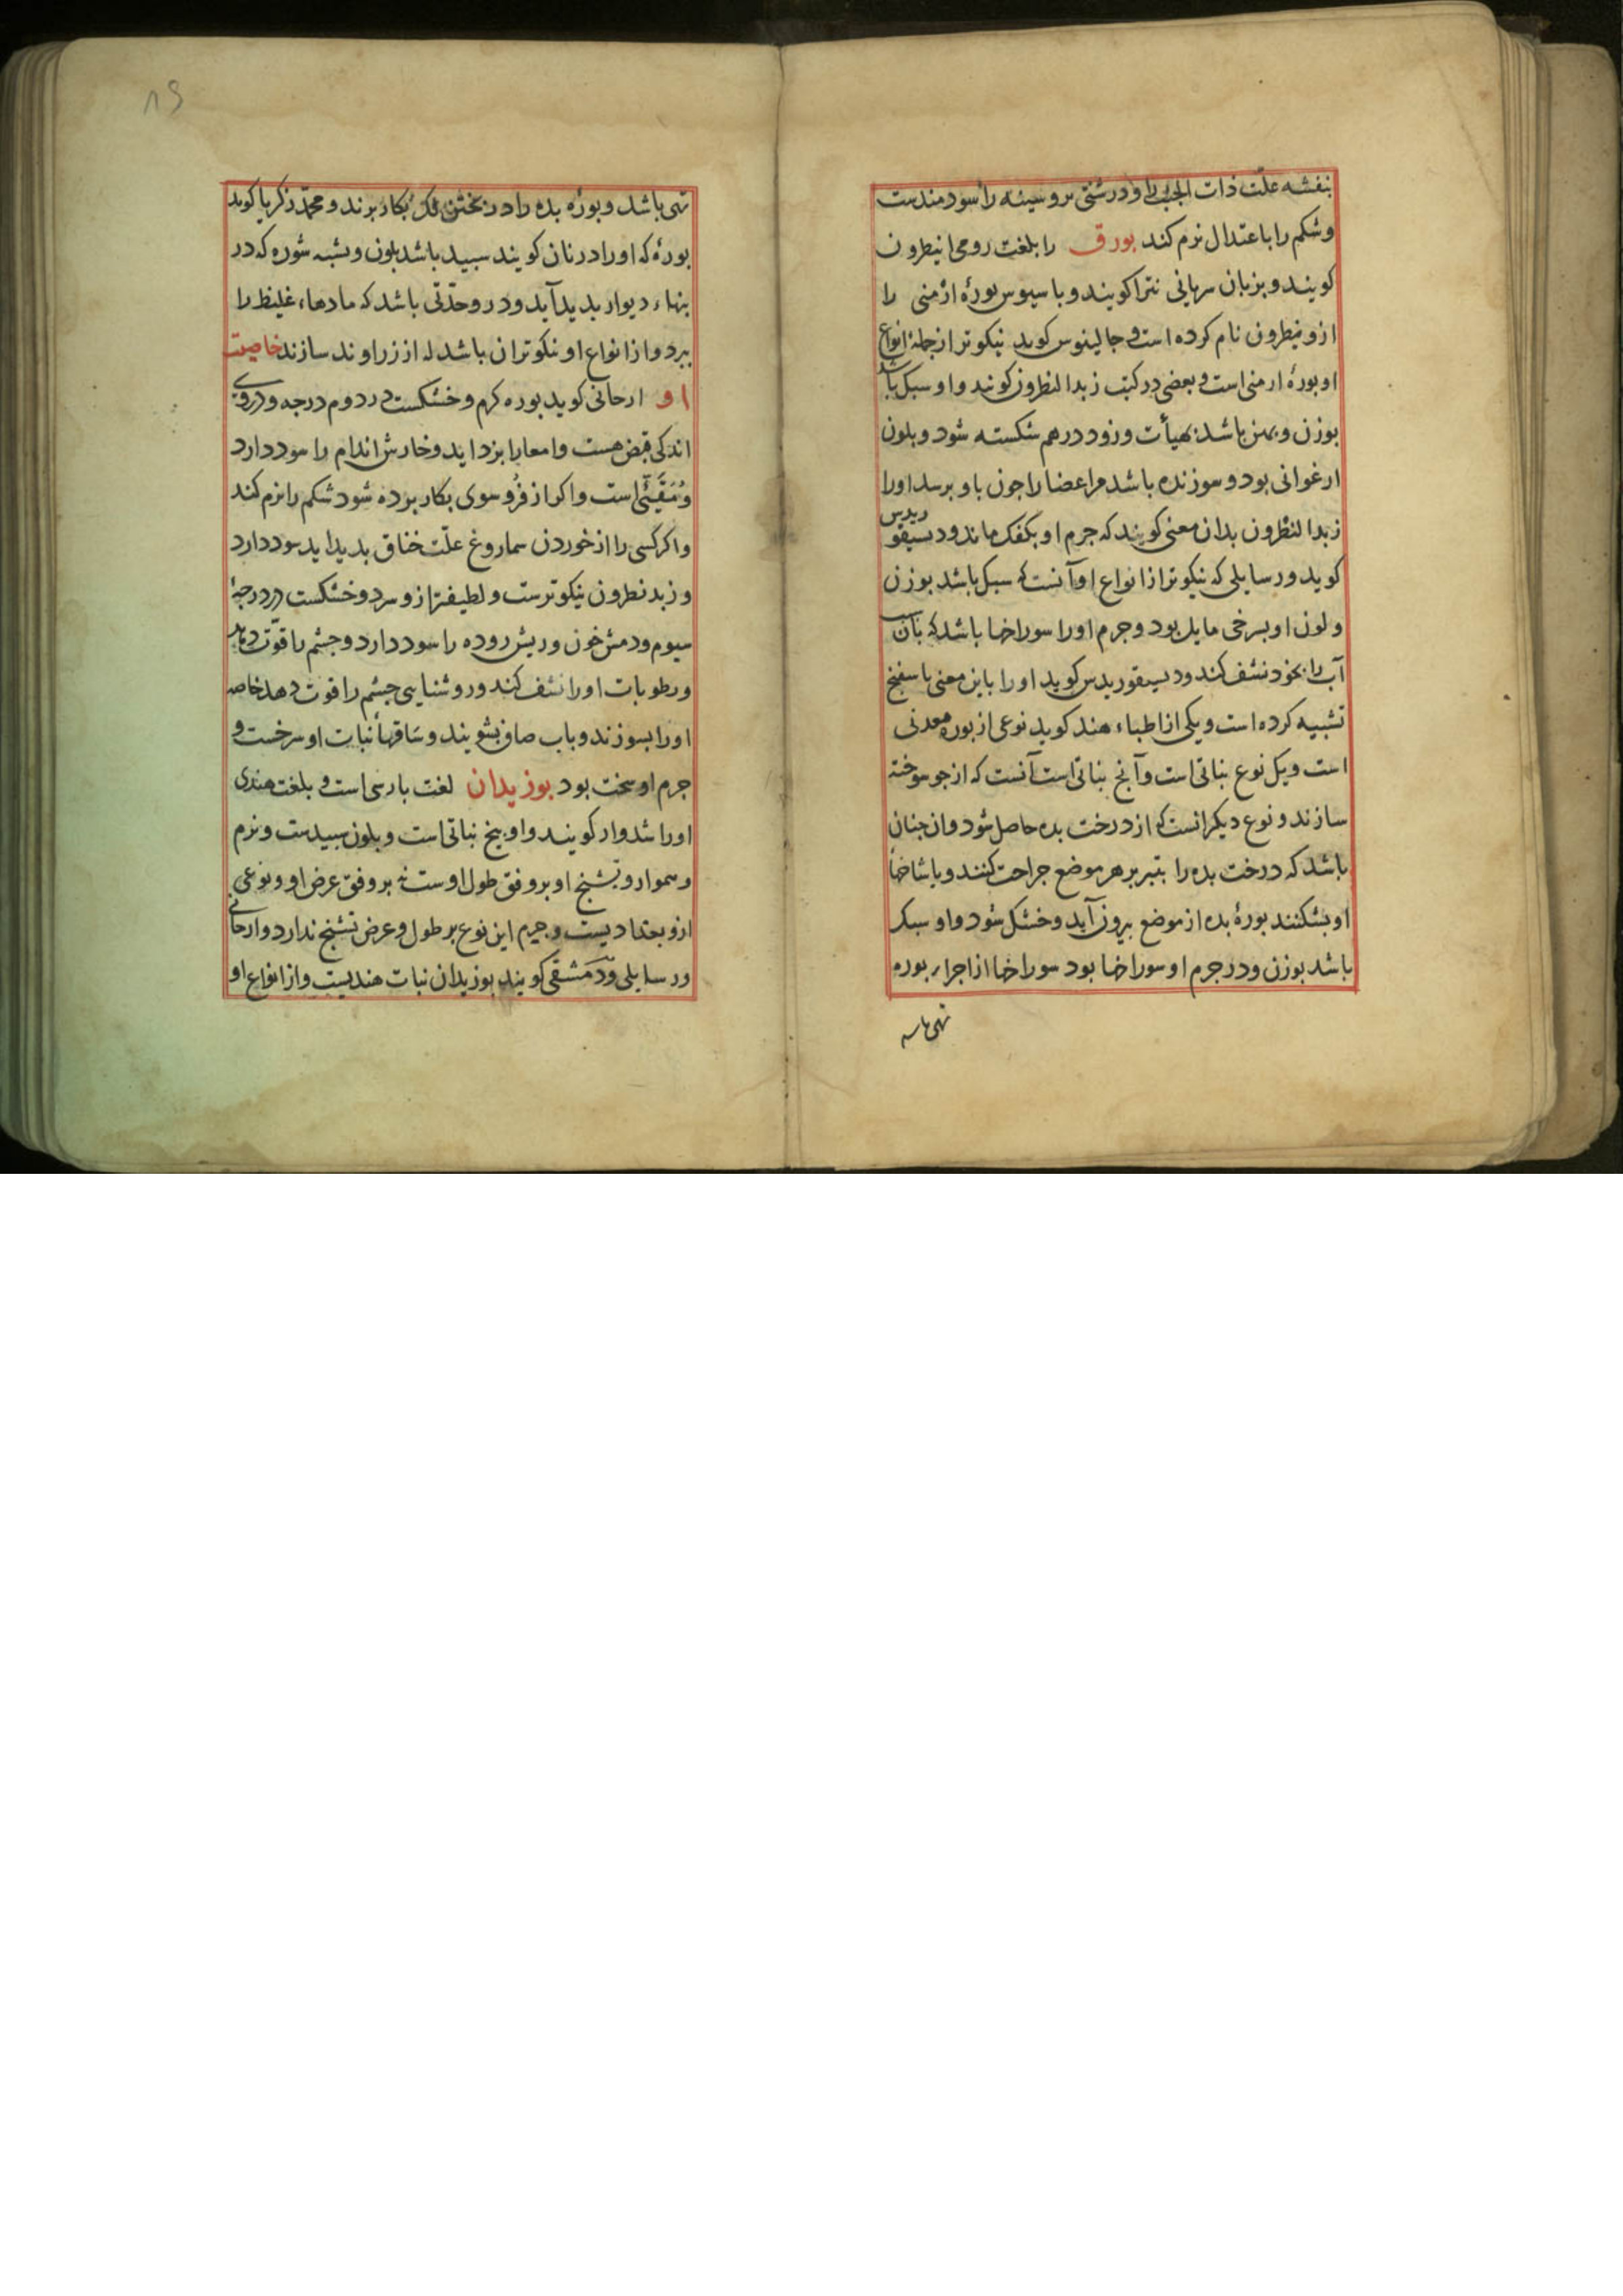 بنفشه علّت ذات الجنب را و درشتی بر و سینه را سودمندست
و شکم را باعتدال نرم کند بورق را بلغت رومی انیطرون
کویند و بزبان سریانی نترا کویند و باسیوس بورهٔ ارمنی را
ازو نیطرون نام کرده است و جالینوس کوید نیکوتر از جملهٔ انواع
او بورهٔ ارمنی است و بعضی در کتب زبد النطرون کویند و او سبک باشد
بوزن و بهیأت و زود درهم شکسته شود و بلون
ارغوانی بود و سوزنده باشد مر اعضا را جون باو برسد او را
زبد النطرون بدان معنی کویند که جرم او بکفک ماند و دیسیقوریدس
کوید در سایلی که نیکوتر از انواع او آنست که سبک باشد بوزن
و لون او بسرخی مایل بود و جرم او را سوراخها باشد که بآن
آب را بخود نشف کند و دیسیقوریدس کوید او را باین معنی باسفنج
تشبیه کرده است و یکی از اطباء هند کوید نوعی از بوره معدنی
است و یک نوع نباتی است و آنج نباتی است آنست که از جو سوخته
سازند و نوع دیکر انست که از درخت بده حاصل شود و ان جنان
باشد که درخت بده را بتبر بر هر موضع جراحت کنند و یا شاخها
او بشکنند بورهٔ بده از موضع بیرون آید و خشک شود و او سبک
باشد بوزن و در جرم او سوراخها بود سوراخها از اجزاء بوره
تهی باشد
تهی باشد و بورهٔ بده را در بختن لک بکار برند و محمّد زکریا کوید
بورهٔ که او را در نان کویند سبید باشد بلون و بشبه شوره که در
بنهاء دیوار بدید آید و در و حدّتی باشد که مادهاء غلیظ را
ببرد و از انواع او نیکوتر ان باشد که از زراوند سازند خاصیت
او ارجانی کوید بوره کرم و خشکست در دوم درجه و در وی
اندکی قبض هست و امعا را بزداید و خارش اندام را سود دارد
و مُقَیّئی است و اکر از فرو سوی بکار برده شود شکم را نرم کند
و اکر کسی را از خوردن سماروغ علّت خناق بدید اید سود دارد
و زبد نطرون نیکوترست و لطیفتر ازو سرد و خشکست در درجهٔ
سیوم و دمش خون و ریش روده را سود دارد و جشم را قوّت دهد
و رطوبات او را نشف کند و روشنایی جشم را قوت دهد خاصه
او را بسوزند و باب صافی بشویند و ساقها نبات او سرخست و
جرم او سخت بود بوزیدان لغت بارسی است و بلغت هندی
او را شدوار کویند و او بیخ نباتی است و بلون سبیدست و نرم
و هموار و تشنج او بر وفق طول اوست نه بر وفق عرض او و نوعی
ازو بغدادیست و جرم این نوع بر طول و عرض تشنج ندارد و ارجانی
در سایلی و دمشقی کویند بوزیدان نبات هندیست و از انواع او